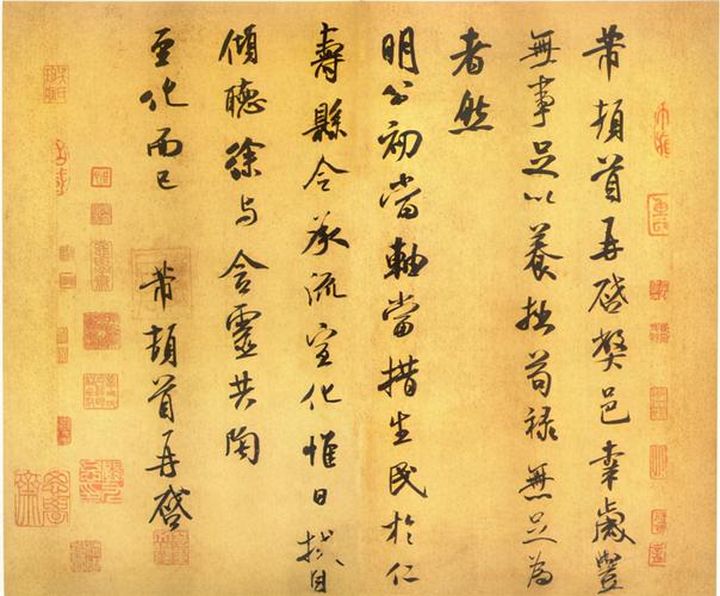 芾頓首再啓弊邑幸歲豐
無事足以養拙苟祿無足為
者然
明公初當軸當措生民於仁
壽縣令承流宣化惟日拭目
傾聽徐与含靈共陶
至化而已 芾頓首再啓